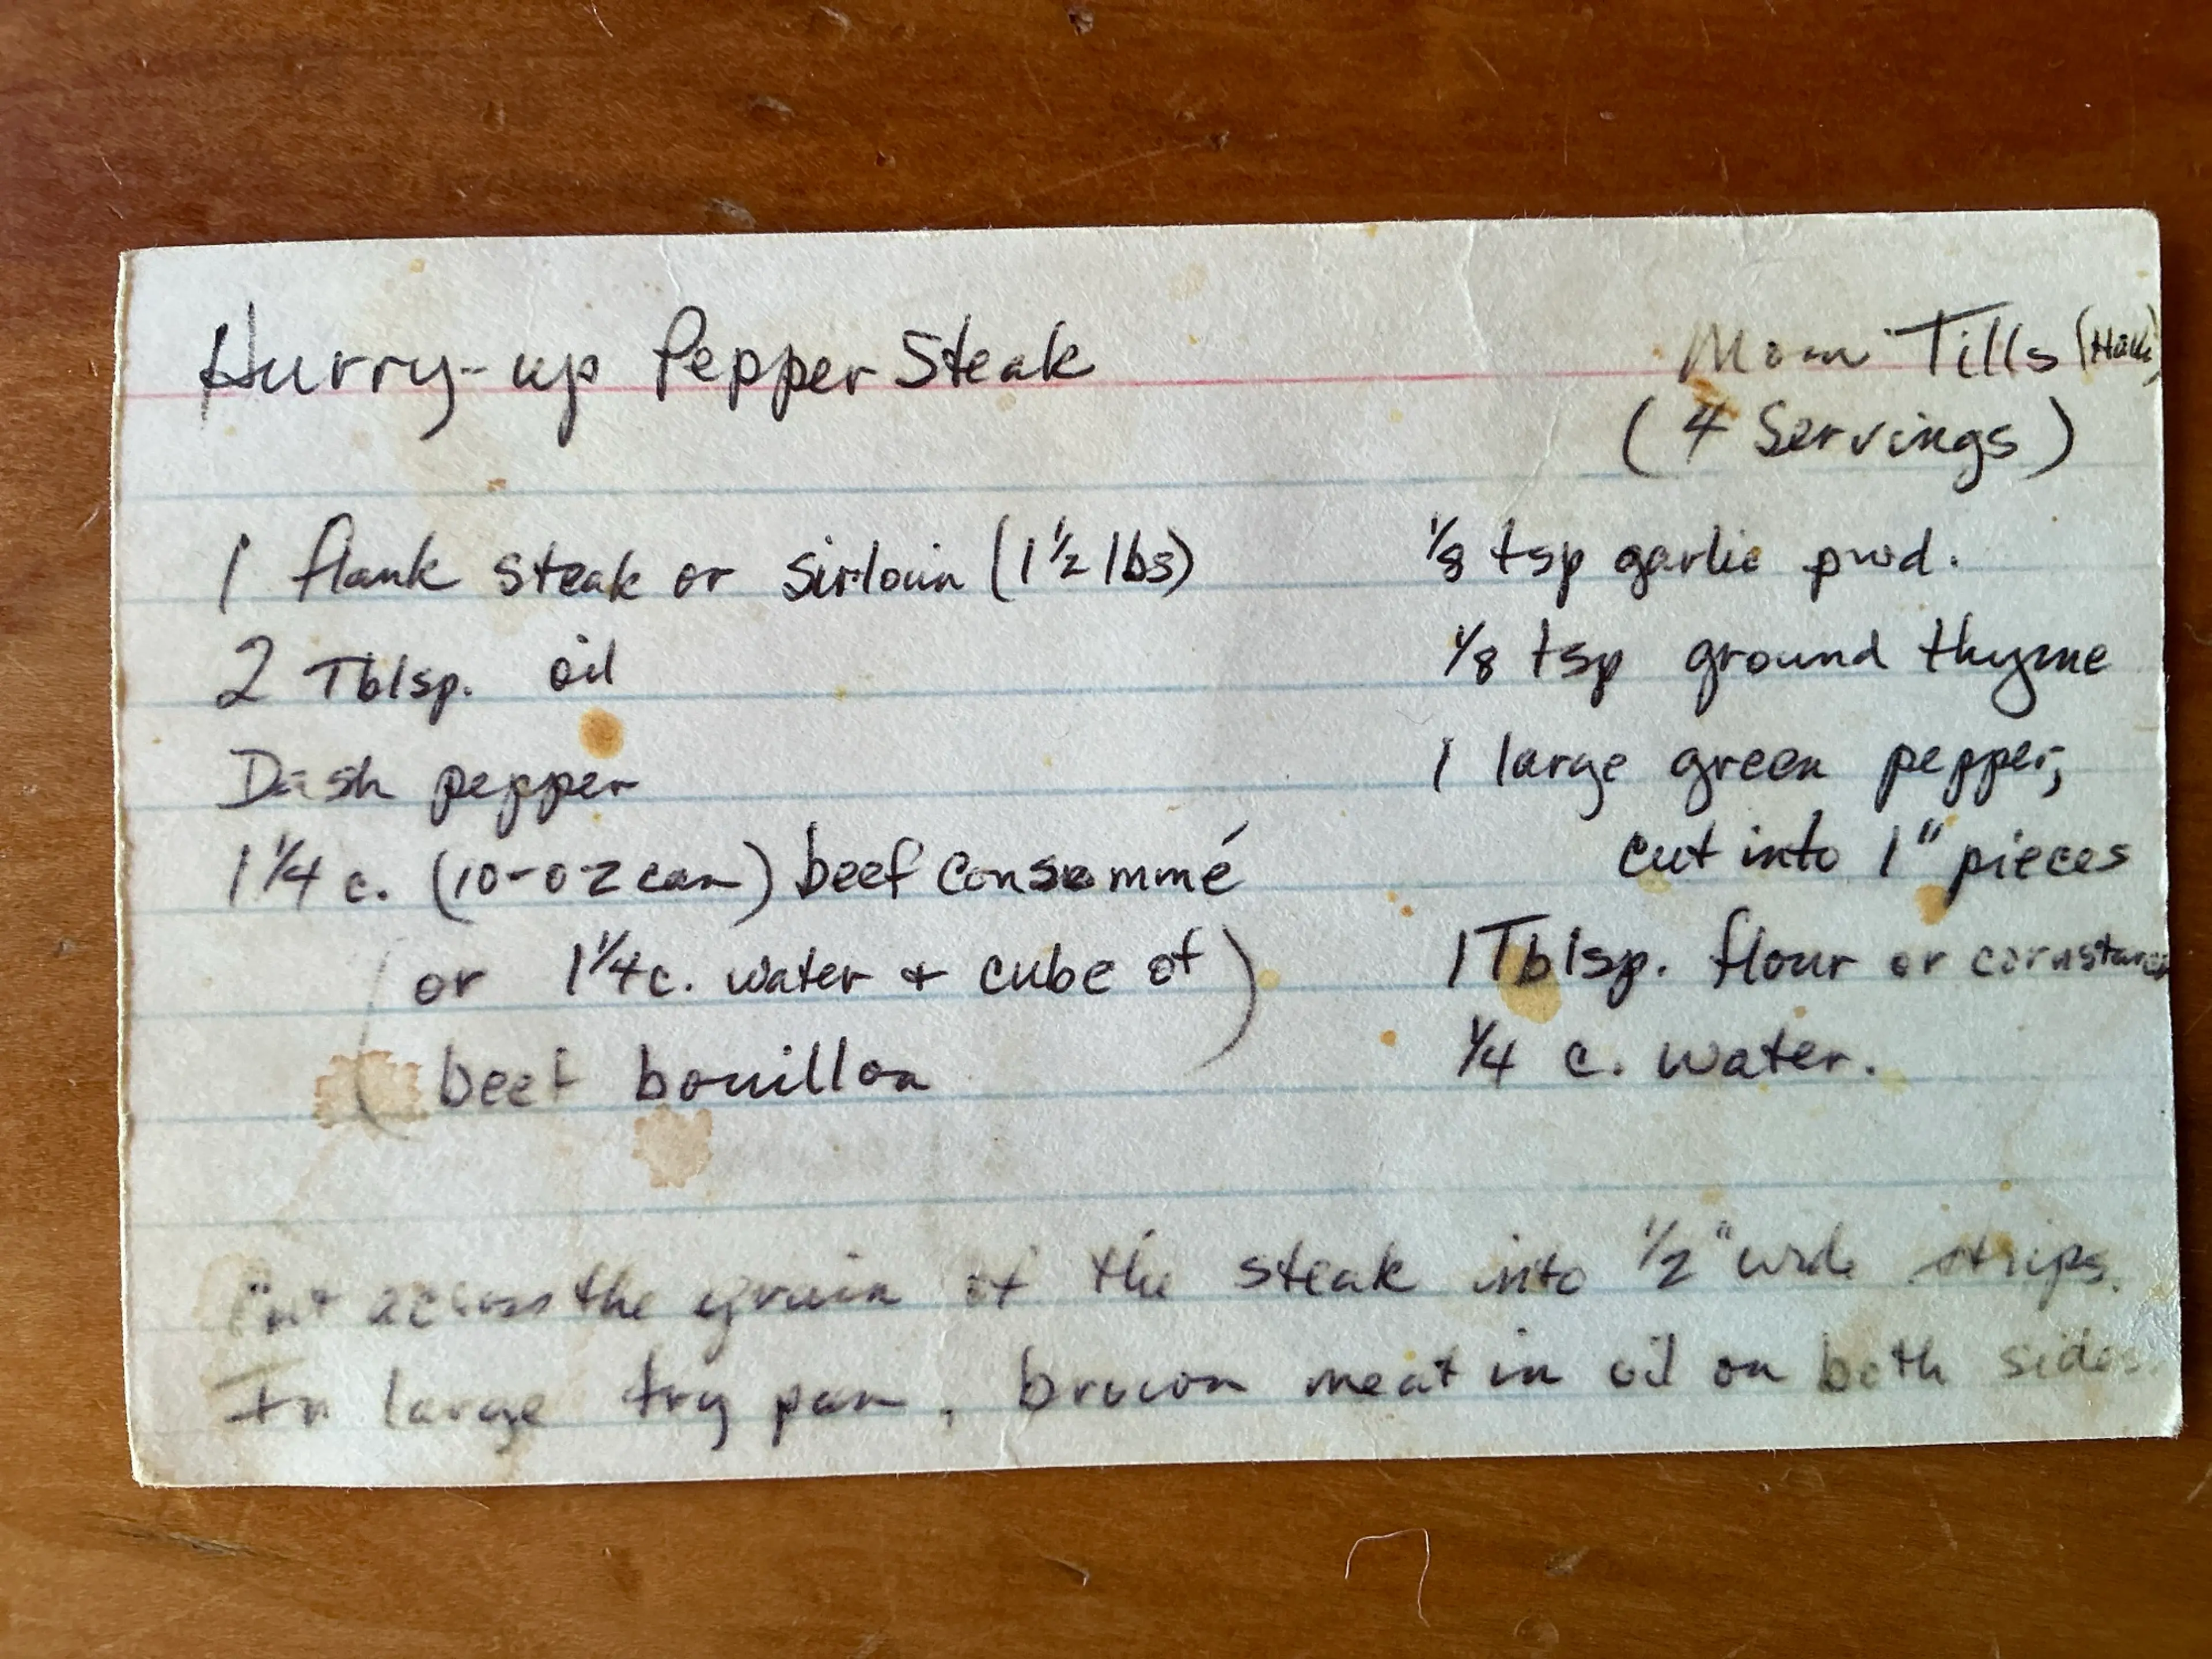 Hurry-up Pepper Steak
Mom Tills
(4 Servings)
1 flank steak or sirloin (1 1/2 lbs)
2 Tblsp. oil
Dash pepper
1 1/4 c. (10-oz can) beef consommé
(or 1 1/4 c. water + cube of
beef bouillon)
1/8 tsp garlic pwd.
1/8 tsp ground thyme
1 large green pepper,
cut into 1" pieces
1 Tblsp. flour or cornstarch
1/4 c. water.
Cut across the grain of the steak into 1/2" wide strips.
In large fry pan, brown meat in oil on both sides.